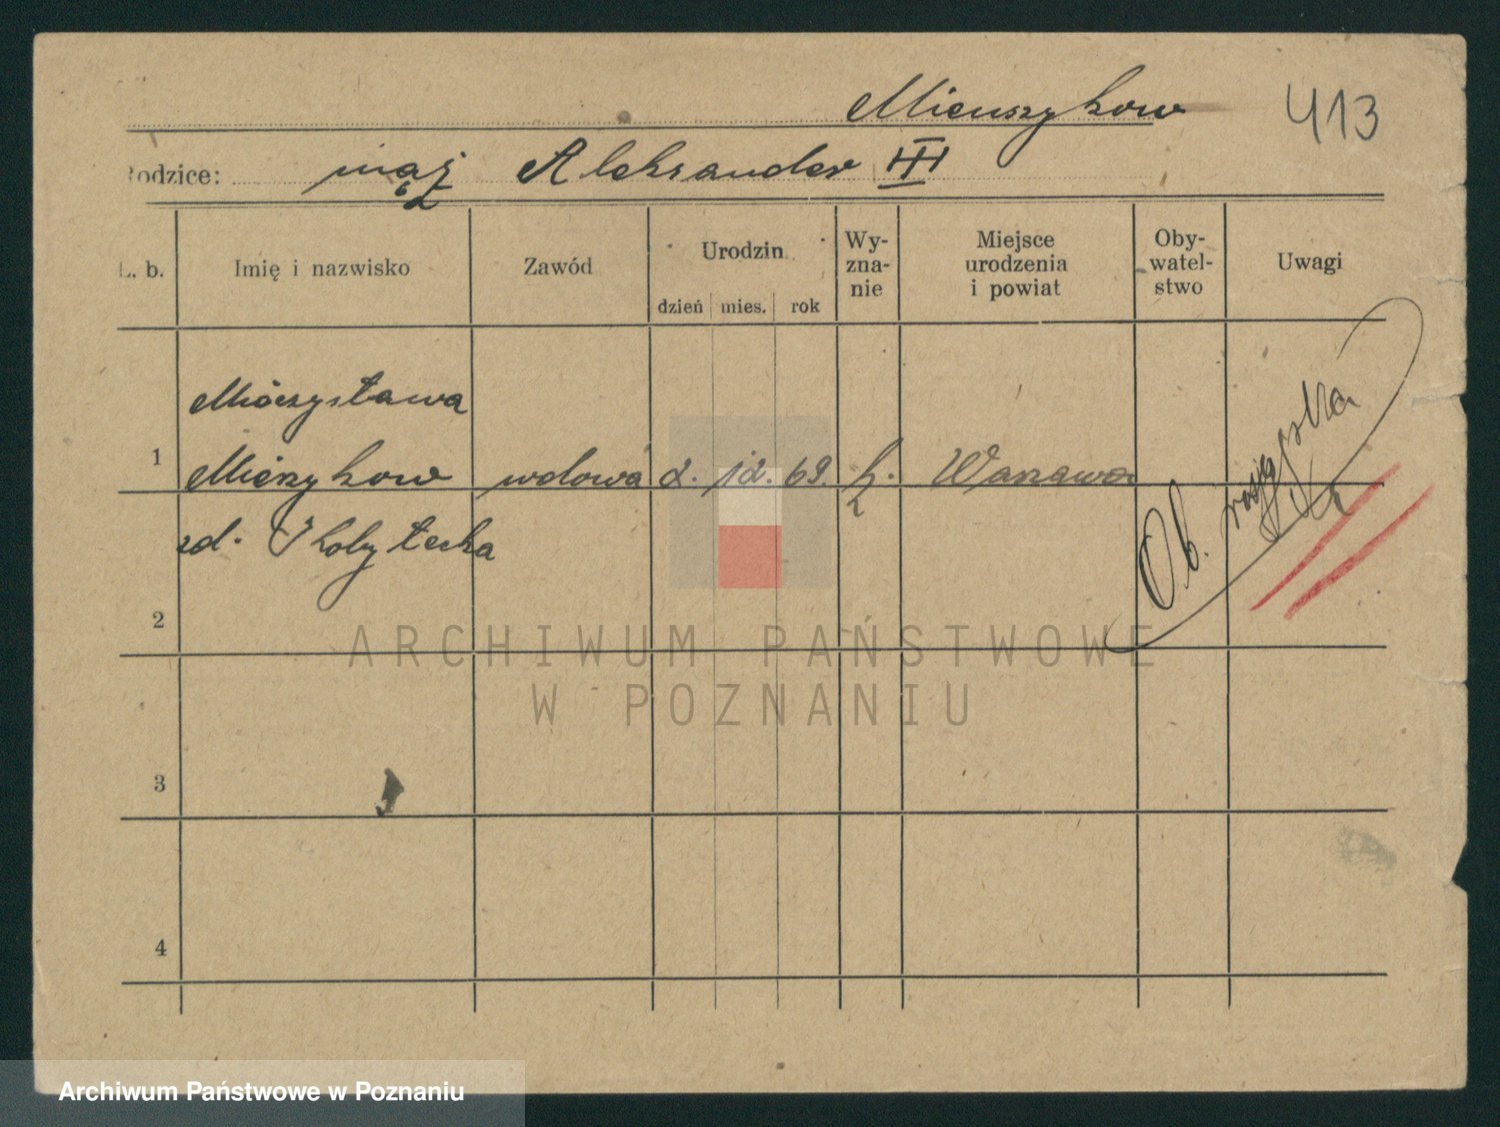 Mienszykow 413
Rodzice: mąż Aleksander III
L. b. Imię i nazwisko Zawód Urodzin dzień mies. rok Wy-zna-nie Miejsce urodzenia i powiat Oby-watel-stwo Uwagi
Mieczysława
1 Mienszykow wdowa 2. 12. 69. k. Warszawa
Ob. rosyjska
zd. Skobytecka
2
3
4
ARCHIWUM PAŃSTWOWE
W POZNANIU
Archiwum Państwowe w Poznaniu